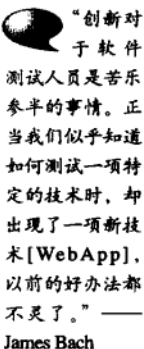 “创新对
于软件
测试人员是苦乐
参半的事情。正
当我们似乎知道
如何测试一项特
定的技术时，却
出现了一项新技
术[WebApp]，
以前的好办法都
不灵了。”——
James Bach